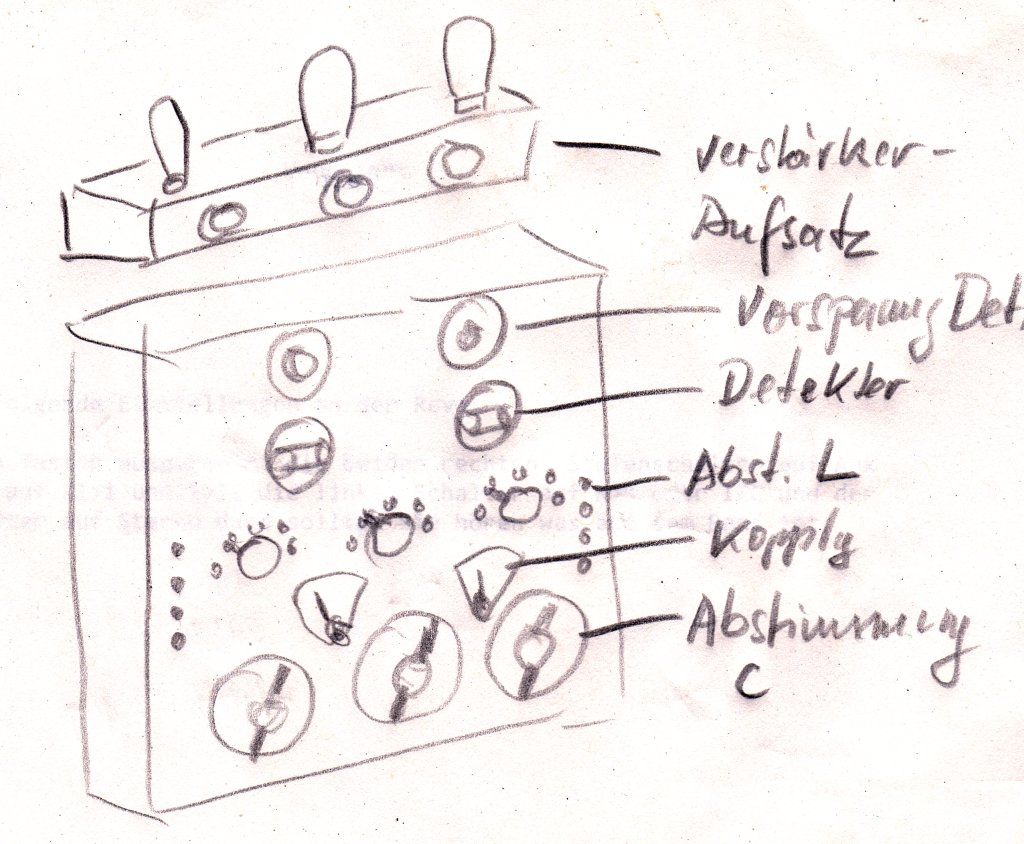 Verstärker-
Aufsatz
Vorspannung Det.
Detektor
Abst. L
Kopplg
Abstimmung
C